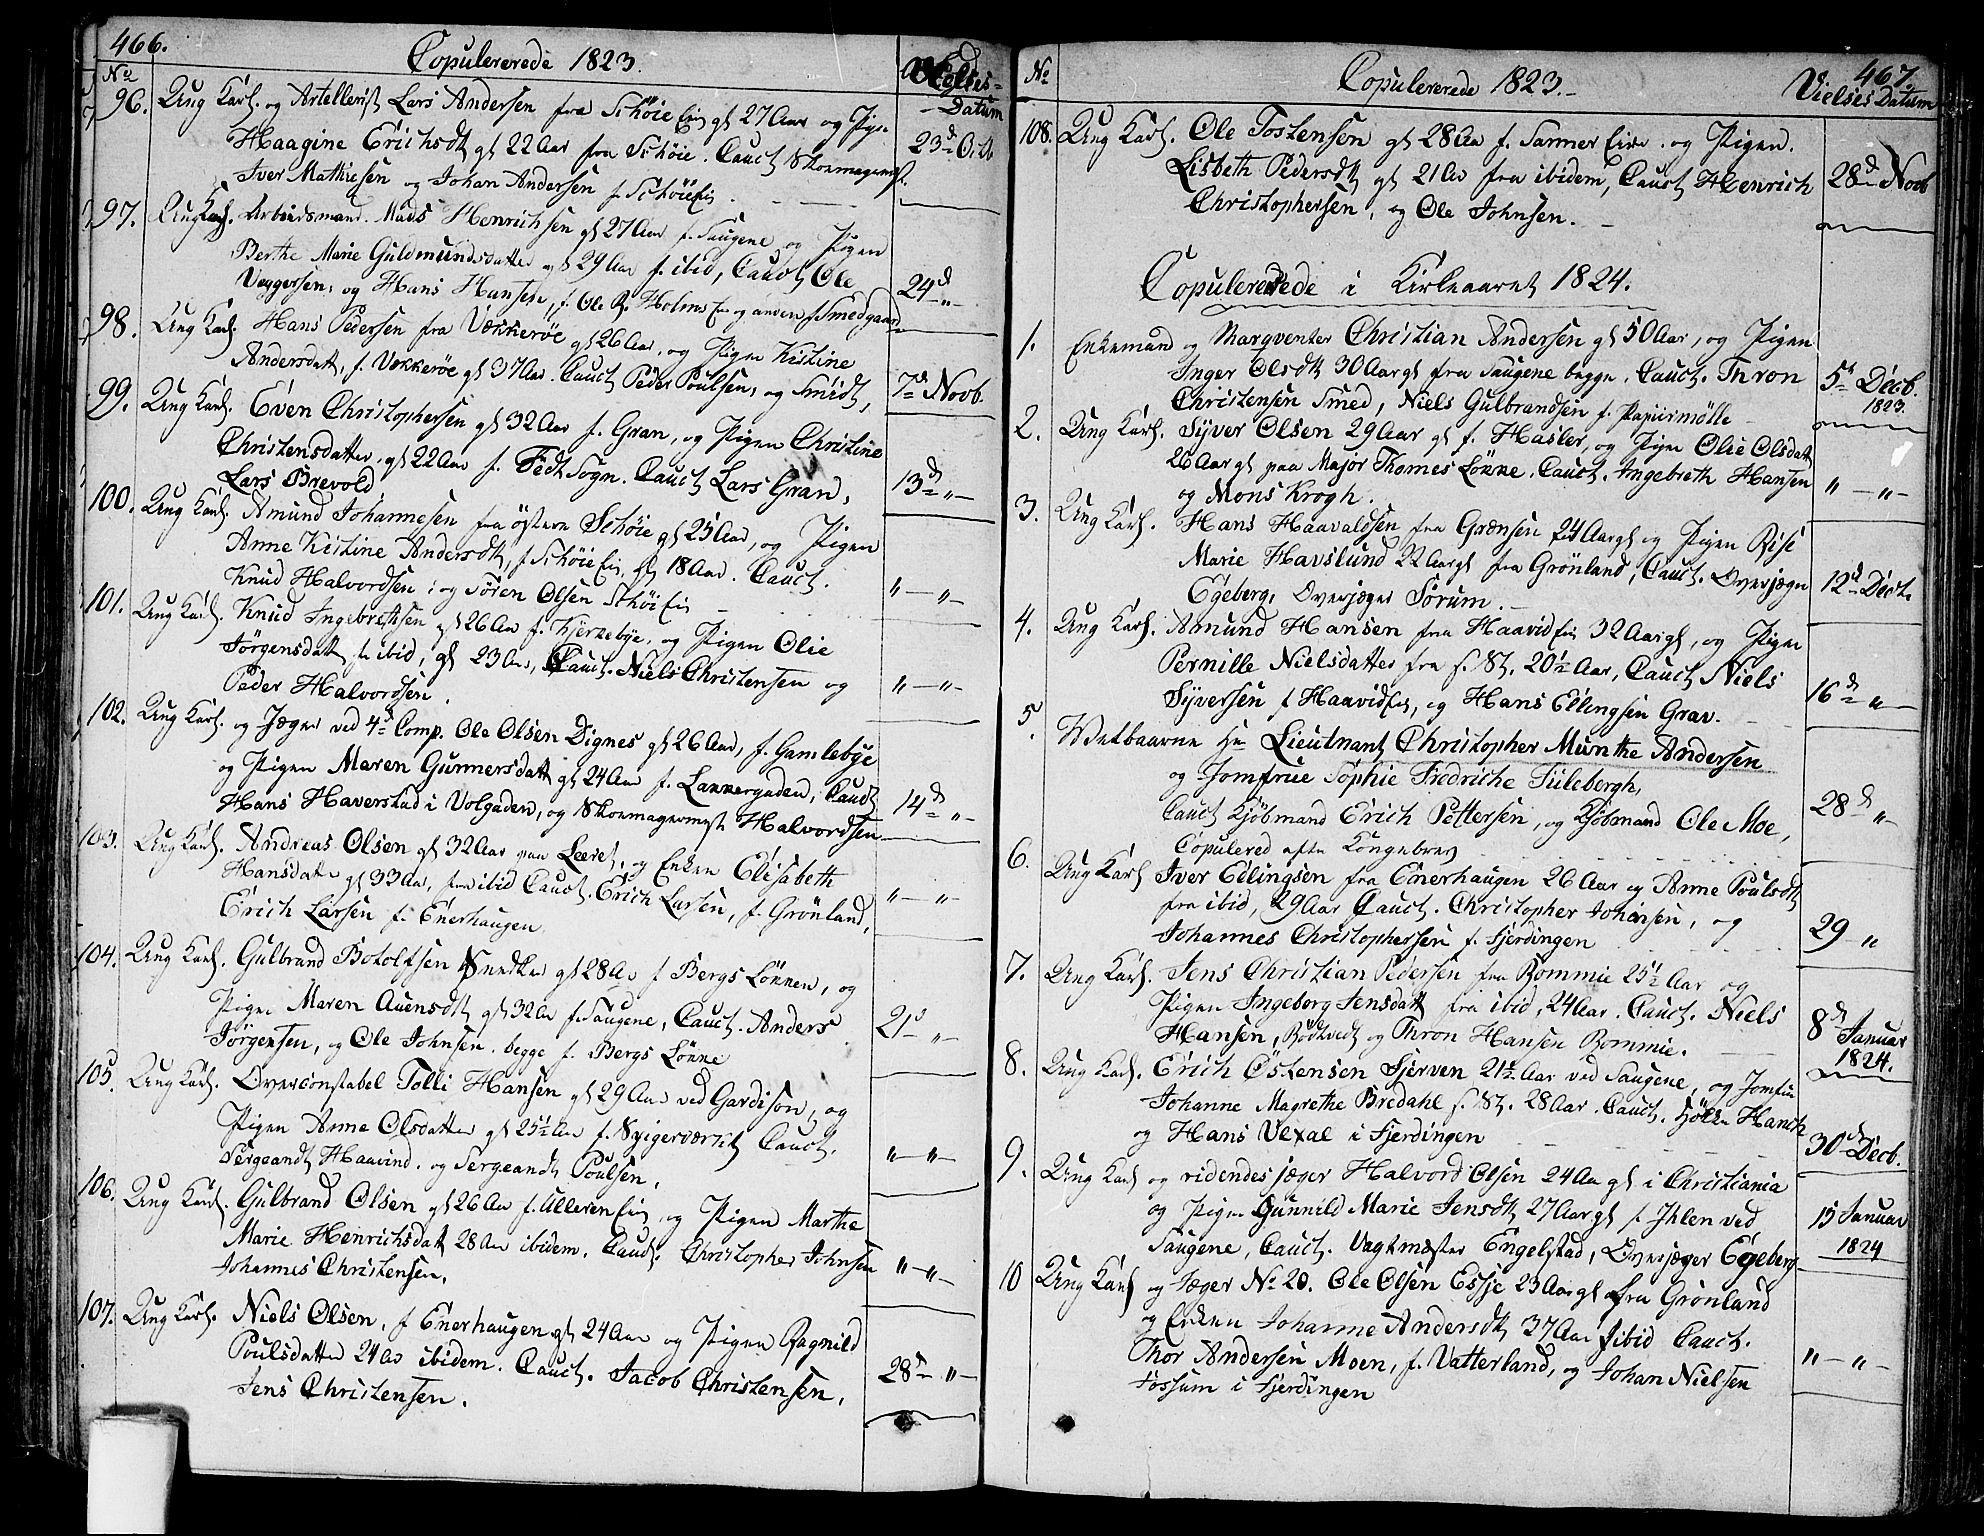 466.
Copulererede 1823.
No
Vielses-
Datum
96. Ung Karl. og Artellerist Lars Andersen fra Schöie Eie gl 27 Aar og Pige
Haagine Erichsdt gl 22 Aar fra Schöie. Cauct Skomagermst.
23d Octb
Iver Mathiesen og Johan Andersen f. Schöie Eie.
97. Ung Karl. Arbeidsmand. Mads Henrichsen gl 27 Aar f. Saugene og Pigen
Berthe Marie Guldmundsdatter gl 29 Aar f. ibid, Cauct Ole
Veggersen, og Hans Hansen, f. Ole R. Holms Eie og anden f. Smedgaard
24d "
98. Ung Karl. Hans Pedersen fra Vækkeröe gl 26 Aar, og Pigen Kistine
Andersdatt, f. Vækkeröe gl 37 Aar. Cauct Peder Poulsen, og Smidt,
7d Novb.
99. Ung Karl. Even Christophersen gl 32 Aar f. Gran, og Pigen Christine
Christensdatter, gl 22 Aar f. Fedt Sogn. Cauct Lars Gran,
Lars Brevold
13d "
100. Ung Karl. Amund Johannesen fra östern Schöie gl 25 Aar, og Pigen
Anne Kistine Andersdt, f. Schöie Eie, gl 18 Aar. Cauct.
Knud Halvordsen, og Sören Olsen Schöie Eie
" — "
101. Ung Karl. Knud Ingebretsen gl 26 Aar f. Kjerneby, og Pigen Olie
Jörgensdatt fr ibid, gl 23 Aar, Cauct. Niels Christensen og
Peder Halvordsen.
" — "
102. Ung Karl. og Jæger ved 4d Comp. Ole Olsen Dignes gl 26 Aar, f. Gamlebye
og Pigen Maren Gunnersdatt gl 24 Aar f. Lakkergaden, Cauct
Hans Haverstad i Volgaden, og Skomagermst Halvordsen
14d "
103. Ung Karl. Andreas Olsen gl 32 Aar paa Leeret, og Enken Elisabeth
Hansdatter gl 33 Aar, fra ibid Cauct. Erich Larsen, f. Grönland,
Erich Larsen f. Enerhaugen
" — "
104. Ung Karl. Gulbrand Botolfsen Snedker gl 28 Aar f Bergs Lökken, og
Pigen Maren Auensdt gl 32 Aar f. Saugene, Cauct. Anders
Jörgensen, og Ole Johnsen. begge f. Bergs Lökke
21d "
105. Ung Karl. Overconstabel Tolli Hansen gl 29 Aar ved Gardison, og
Pigen Anne Olsdatter gl 25½ Aar f. Spigerværket Cauct.
Sergeandt Haavind. og Sergeandt Poulsen,
" — "
106. Ung Karl. Gulbrand Olsen gl 26 Aar f. Ulleren Eie, og Pigen Marthe
Marie Henrichsdatt 28 Aar ibidem, Cauct. Christopher Johnsen
Johannes Christensen.
" — "
107. Ung Karl. Niels Olsen, f Enerhaugen gl 24 Aar og Pigen Ragnild
Poulsdatter 24 Aar ibidem. Cauct. Jacob Christensen,
Jens Christensen.
28d "
467.
No
Copulererede 1823.
Vielses Datum
108. Ung Karl. Ole Tostensen gl 28 Aar f. Sanner Eie. og Pigen.
Lisbeth Pedersdt gl 21 Aar fra ibidem, Cauct Henrich
Christophersen, og Ole Johnsen.
28d Novb
Copulererede i Kirkeaaret 1824.
1. Enkemand og Marqventer Christian Andersen gl 50 Aar, og Pigen
Inger Olsdt 30 Aar gl fra Saugene begge. Cauct. Thron
Christensen Smed, Niels Gulbrandsen f. Papiirmölle
5t Decb. 1823.
2. Ung Karl. Syver Olsen 29 Aar gl f. Hasler, og Pigen Olie Olsdatt
26 Aar gl paa Major Thomes Lökke. Cauct. Ingebreth Hansen
og Mons Krogh.
" — "
3. Ung Karl. Hans Haavaldsen fra Grænsen 24 Aar gl og Pigen Rise
Marie Havslund 22 Aar gl fra Grönland, Cauct. Overjæger
Egeberg, Overjæger Sörum.
12d Decb.
4. Ung Karl. Amund Hansen fra Haavid Eie 32 Aar gl, og Pigen
Pernille Nielsdatter fra s. St. 20½ Aar, Cauct Niels
Syversen f Haavid Eie, og Hans Ellingsen Grav.
16d "
5. Velbaarne Hr Lieutnant Christopher Munthe Andersen
og Jomfrue Sophie Fredriche Tulebergh,
Cauct Kjöbmand Erich Pettersen, og Kjöbmand Ole Moe,
Copulered efter Kongebrev
28d "
6. Ung Karl Iver Edlingsen fra Enerhaugen 26 Aar og Anne Poulsdt
fra ibid, 29 Aar Cauct. Christopher Johansen, og
Johannes Christophersen f. Fjerdingen
29 "
7. Ung Karl. Jens Christian Pedersen fra Rommie 25½ Aar og
Pigen Ingeborg Jensdatt fra ibid, 24 Aar. Cauct. Niels
Hansen, Rödtvedt og Thron Hansen Rommie.
8d Januar 1824.
8. Ung Karl. Erich Östensen Fjerven 21½ Aar ved Saugene, og Jomfru
Johanne Magrethe Bredahl s. St. 28 Aar. Cauct. Hölke Hanch
og Hans Ulxal i Fjerdingen
30d Decb.
9. Ung Karl og ridendesjæger Halvord Olsen 24 Aar gl i Christiania
og Pigen Gunnild Marie Jensdt 27 Aar gl f Ihlen ved
Saugene, Cauct. Vagtmester Engelstad, Overjæger Egeberg
15 Januar 1824
10 Ung Karl og Jæger No 20. Ole Olsen Essje 23 Aar gl fra Grönland
og Enken Johanne Andersdt 37 Aar f ibid Cauct.
Thor Andersen Moen, f. Vatterland, og Johan Nielsen
Fossum i Fjerdingen
" — "